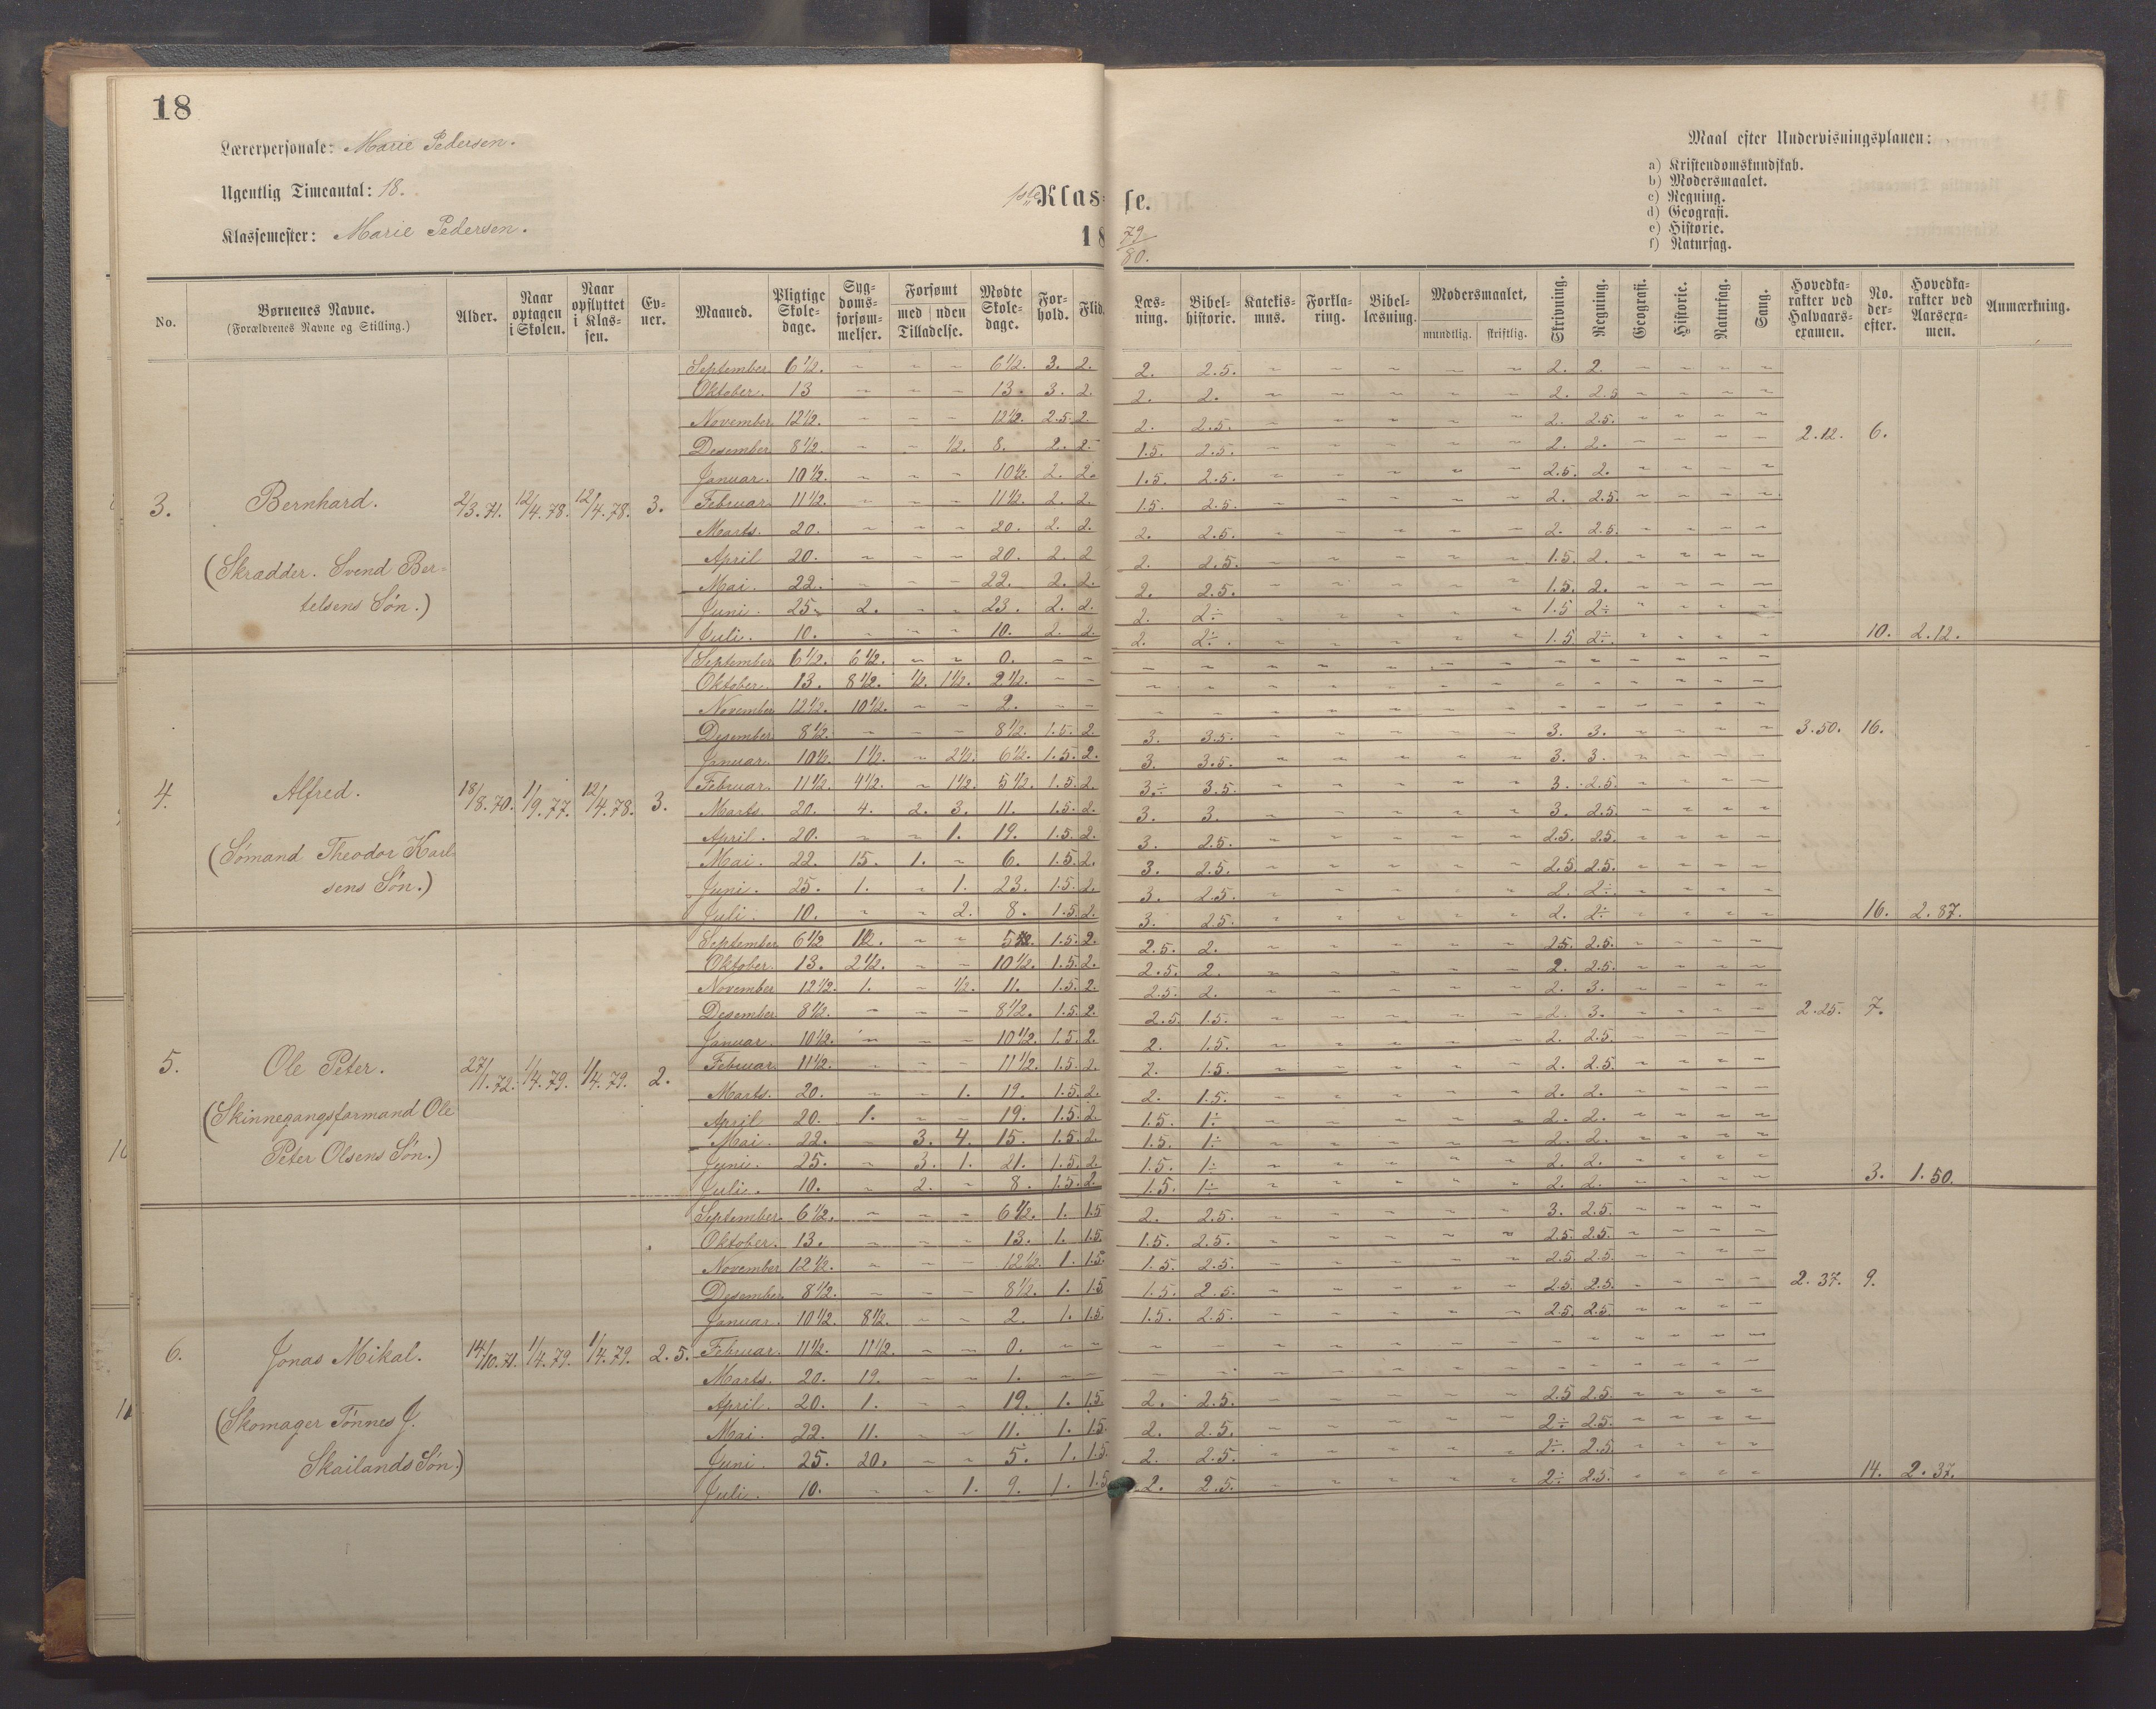 18
Lærerpersonale: Marie Pedersen.
Ugentlig Timeantal: 18.
Klassemester: Marie Pedersen.
1ste Klasse.
18 79/80.
Maal efter Undervisningsplanen:
a) Kristendomskundskab.
b) Modersmaalet.
c) Regning.
d) Geografi.
e) Historie.
f) Naturfag.
No. | Børnenes Navne. (Forældrenes Navne og Stilling.) | Alder. | Naar optagen i Skolen. | Naar opflyttet i Klassen. | Evner. | Maaned. | Pligtige Skoledage. | Sygdomsforsømmelser. | Forsømt med / uden Tilladelse. | Mødte Skoledage. | Forhold. | Flid. | Læsning. | Bibelhistorie. | Katekismus. | Forklaring. | Bibellæsning. | Modersmaalet, mundtlig. skriftlig. | Skrivning. | Regning. | Geografi. | Historie. | Naturfag. | Sang. | Hovedkarakter ved Halvaarsexamen. | No. derefter. | Hovedkarakter ved Aarsexamen. | Anmærkning.
3. Bernhard. 2/3.71. 12/4.78. 12/4.78. 3.
(Skrædder. Svend Ber-
telsens Søn.)
September 6 1/2. ~ ~ ~ 6 1/2. 3. 2. 2. 2.5. ~ ~ ~ ~ ~ 2. 2. ~ ~ ~ ~
Oktober. 13 ~ ~ ~ 13. 3. 2. 2. 2. ~ ~ ~ ~ ~ 2. 2.5 ~ ~ ~ ~
November 12 1/2. ~ ~ ~ 12 1/2. 2.5. 2. 2. 2.5. ~ ~ ~ ~ ~ 2. 2.5. ~ ~ ~ ~
Desember 8 1/2. ~ ~ 1/2. 8. 2. 2. 1.5. 2.5. ~ ~ ~ ~ ~ 2. 2. ~ ~ ~ ~ 2.12. 6.
Januar. 10 1/2. ~ ~ ~ 10 1/2. 2. 2. 1.5. 2.5. ~ ~ ~ ~ ~ 2.5. 2. ~ ~ ~ ~
Februar. 11 1/2. ~ ~ ~ 11 1/2. 2. 2. 1.5. 2.5. ~ ~ ~ ~ ~ 2. 2.5. ~ ~ ~ ~
Marts. 20. ~ ~ ~ 20. 2. 2. 2. 2.5. ~ ~ ~ ~ ~ 2. 2.5. ~ ~ ~ ~
April 20. ~ ~ ~ 20. 2. 2 2. 2.5. ~ ~ ~ ~ ~ 1.5. 2. ~ ~ ~ ~
Mai. 22. ~ ~ ~ 22. 2. 2. 2. 2.5. ~ ~ ~ ~ ~ 1.5. 2. ~ ~ ~ ~
Juni. 25. 2. ~ ~ 23. 2. 2. 2. 2÷ ~ ~ ~ ~ ~ 1.5 2÷ ~ ~ ~ ~
Juli. 10. ~ ~ ~ 10. 2. 2. 2. 2÷. ~ ~ ~ ~ ~ 1.5 2÷. ~ ~ ~ ~ 10. 2.12.
4. Alfred. 18/8.70. 1/9.77. 12/4.78. 3.
(Sømand Theodor Karl-
sens Søn.)
September 6 1/2. 6 1/2. ~ ~ 0. ~ ~ ~ ~ ~ ~ ~ ~ ~ ~ ~ ~ ~ ~ ~
Oktober. 13. 8 1/2. 1/2. 1 1/2. 2 1/2. ~ ~ ~ ~ ~ ~ ~ ~ ~ ~ ~ ~ ~ ~ ~
November 12 1/2. 10 1/2. ~ ~ 2. ~ ~ ~ ~ ~ ~ ~ ~ ~ ~ ~ ~ ~ ~ ~
Desember 8 1/2. ~ ~ ~ 8 1/2. 1.5. 2. 3. 3.5. ~ ~ ~ ~ ~ 3. 3. ~ ~ ~ ~ 3.50. 16.
Januar. 10 1/2. 1 1/2. ~ 2 1/2. 6 1/2. 1.5. 2. 3. 3.5. ~ ~ ~ ~ ~ 3. 3. ~ ~ ~ ~
Februar. 11 1/2. 4 1/2. ~ 1 1/2. 5 1/2. 1.5. 2. 3÷ 3.5. ~ ~ ~ ~ ~ 3. 2.5. ~ ~ ~ ~
Marts. 20. 4. 2. 3. 11. 1.5. 2. 3. 3. ~ ~ ~ ~ ~ 3. 2.5. ~ ~ ~ ~
April. 20. ~ ~ 1. 19. 1.5. 2. 3. 2.5. ~ ~ ~ ~ ~ 2.5. 2.5. ~ ~ ~ ~
Mai. 22. 15. 1. ~ 6. 1.5. 2. 3. 2.5. ~ ~ ~ ~ ~ 2.5. 2.5. ~ ~ ~ ~
Juni. 25. 1. ~ 1. 23. 1.5. 2. 3. 2.5. ~ ~ ~ ~ ~ 2. 2÷. ~ ~ ~ ~
Juli. 10. ~ ~ 2. 8. 1.5. 2. 3. 2.5. ~ ~ ~ ~ ~ 2. 2÷ ~ ~ ~ ~ 16. 2.87.
5. Ole Peter. 27/11.72. 1/4.79. 1/4.79. 2.
(Skinnegangsformand Ole
Peter Olsens Søn.)
September 6 1/2 1 1/2. ~ ~ 5. 1.5. 2. 2.5. 2. ~ ~ ~ ~ ~ 2.5. 2.5. ~ ~ ~ ~
Oktober. 13. 2 1/2. ~ ~ 10 1/2. 1.5. 2. 2.5. 2. ~ ~ ~ ~ ~ 2. 2.5. ~ ~ ~ ~
November 12 1/2. 1. ~ 1/2. 11. 1.5. 2. 2.5. 2. ~ ~ ~ ~ ~ 2. 3. ~ ~ ~ ~
Desember 8 1/2. ~ ~ ~ 8 1/2. 1.5. 2. 2.5. 1.5. ~ ~ ~ ~ ~ 2. 3. ~ ~ ~ ~ 2.25. 7.
Januar. 10 1/2. ~ ~ ~ 10 1/2. 1.5. 2. 2. 1.5. ~ ~ ~ ~ ~ 2. 2.5. ~ ~ ~ ~
Februar. 11 1/2. ~ ~ ~ 11 1/2. 1.5. 2. 2. 1.5. ~ ~ ~ ~ ~ 2. 2.5. ~ ~ ~ ~
Marts. 20. ~ ~ 1. 19. 1.5. 2. 2. 1.5. ~ ~ ~ ~ ~ 2. 2. ~ ~ ~ ~
April 20. 1. ~ ~ 19. 1.5. 2. 1.5. 1÷ ~ ~ ~ ~ ~ 2. 2. ~ ~ ~ ~
Mai. 22. ~ 3. 4. 15. 1.5. 2. 1.5. 1÷ ~ ~ ~ ~ ~ 2. 2. ~ ~ ~ ~
Juni. 25. ~ 3. 1. 21. 1.5. 2. 1.5. 1÷ ~ ~ ~ ~ ~ 2. 2. ~ ~ ~ ~
Juli. 10. ~ 2. ~ 8. 1.5. 2. 1.5. 1÷ ~ ~ ~ ~ ~ 2. 2. ~ ~ ~ ~ 3. 1.50.
6. Jonas Mikal. 14/10.71. 1/4.79. 1/4.79. 2.5.
(Skomager Tønnes J.
Skailands Søn.)
September. 6 1/2. ~ ~ ~ 6 1/2. 1. 1.5 2. 2.5. ~ ~ ~ ~ ~ 3. 2.5. ~ ~ ~ ~
Oktober. 13. ~ ~ ~ 13. 1. 1.5. 1.5. 2.5. ~ ~ ~ ~ ~ 2.5. 2.5. ~ ~ ~ ~
November 12 1/2. ~ ~ ~ 12 1/2. 1. 1.5. 1.5. 2.5. ~ ~ ~ ~ ~ 2.5. 2.5. ~ ~ ~ ~
Desember 8 1/2. ~ ~ ~ 8 1/2. 1. 1.5. 1.5. 2.5. ~ ~ ~ ~ ~ 2.5. 2.5. ~ ~ ~ ~ 2.37. 9.
Januar. 10 1/2. 8 1/2. ~ ~ 2. 1. 1.5. 1.5. 2.5. ~ ~ ~ ~ ~ 2.5. 2.5. ~ ~ ~ ~
Februar. 11 1/2. 11 1/2. ~ ~ 0. ~ ~ ~ ~ ~ ~ ~ ~ ~ ~ ~ ~ ~ ~ ~
Marts. 20. 19. ~ ~ 1. ~ ~ ~ ~ ~ ~ ~ ~ ~ ~ ~ ~ ~ ~ ~
April. 20. 1. ~ ~ 19. 1. 1.5. 2. 2.5. ~ ~ ~ ~ ~ 2.5 2.5. ~ ~ ~ ~
Mai. 22. 11. ~ ~ 11. 1. 1.5. 2. 2.5. ~ ~ ~ ~ ~ 2÷ 2.5. ~ ~ ~ ~
Juni. 25. 20. ~ ~ 5. 1. 1.5. 2. 2.5. ~ ~ ~ ~ ~ 2÷. 2.5. ~ ~ ~ ~
Juli. 10. ~ ~ 1. 9. 1. 1.5. 2. 2.5. ~ ~ ~ ~ ~ 2÷ 2.5. ~ ~ ~ ~ 14. 2.37.